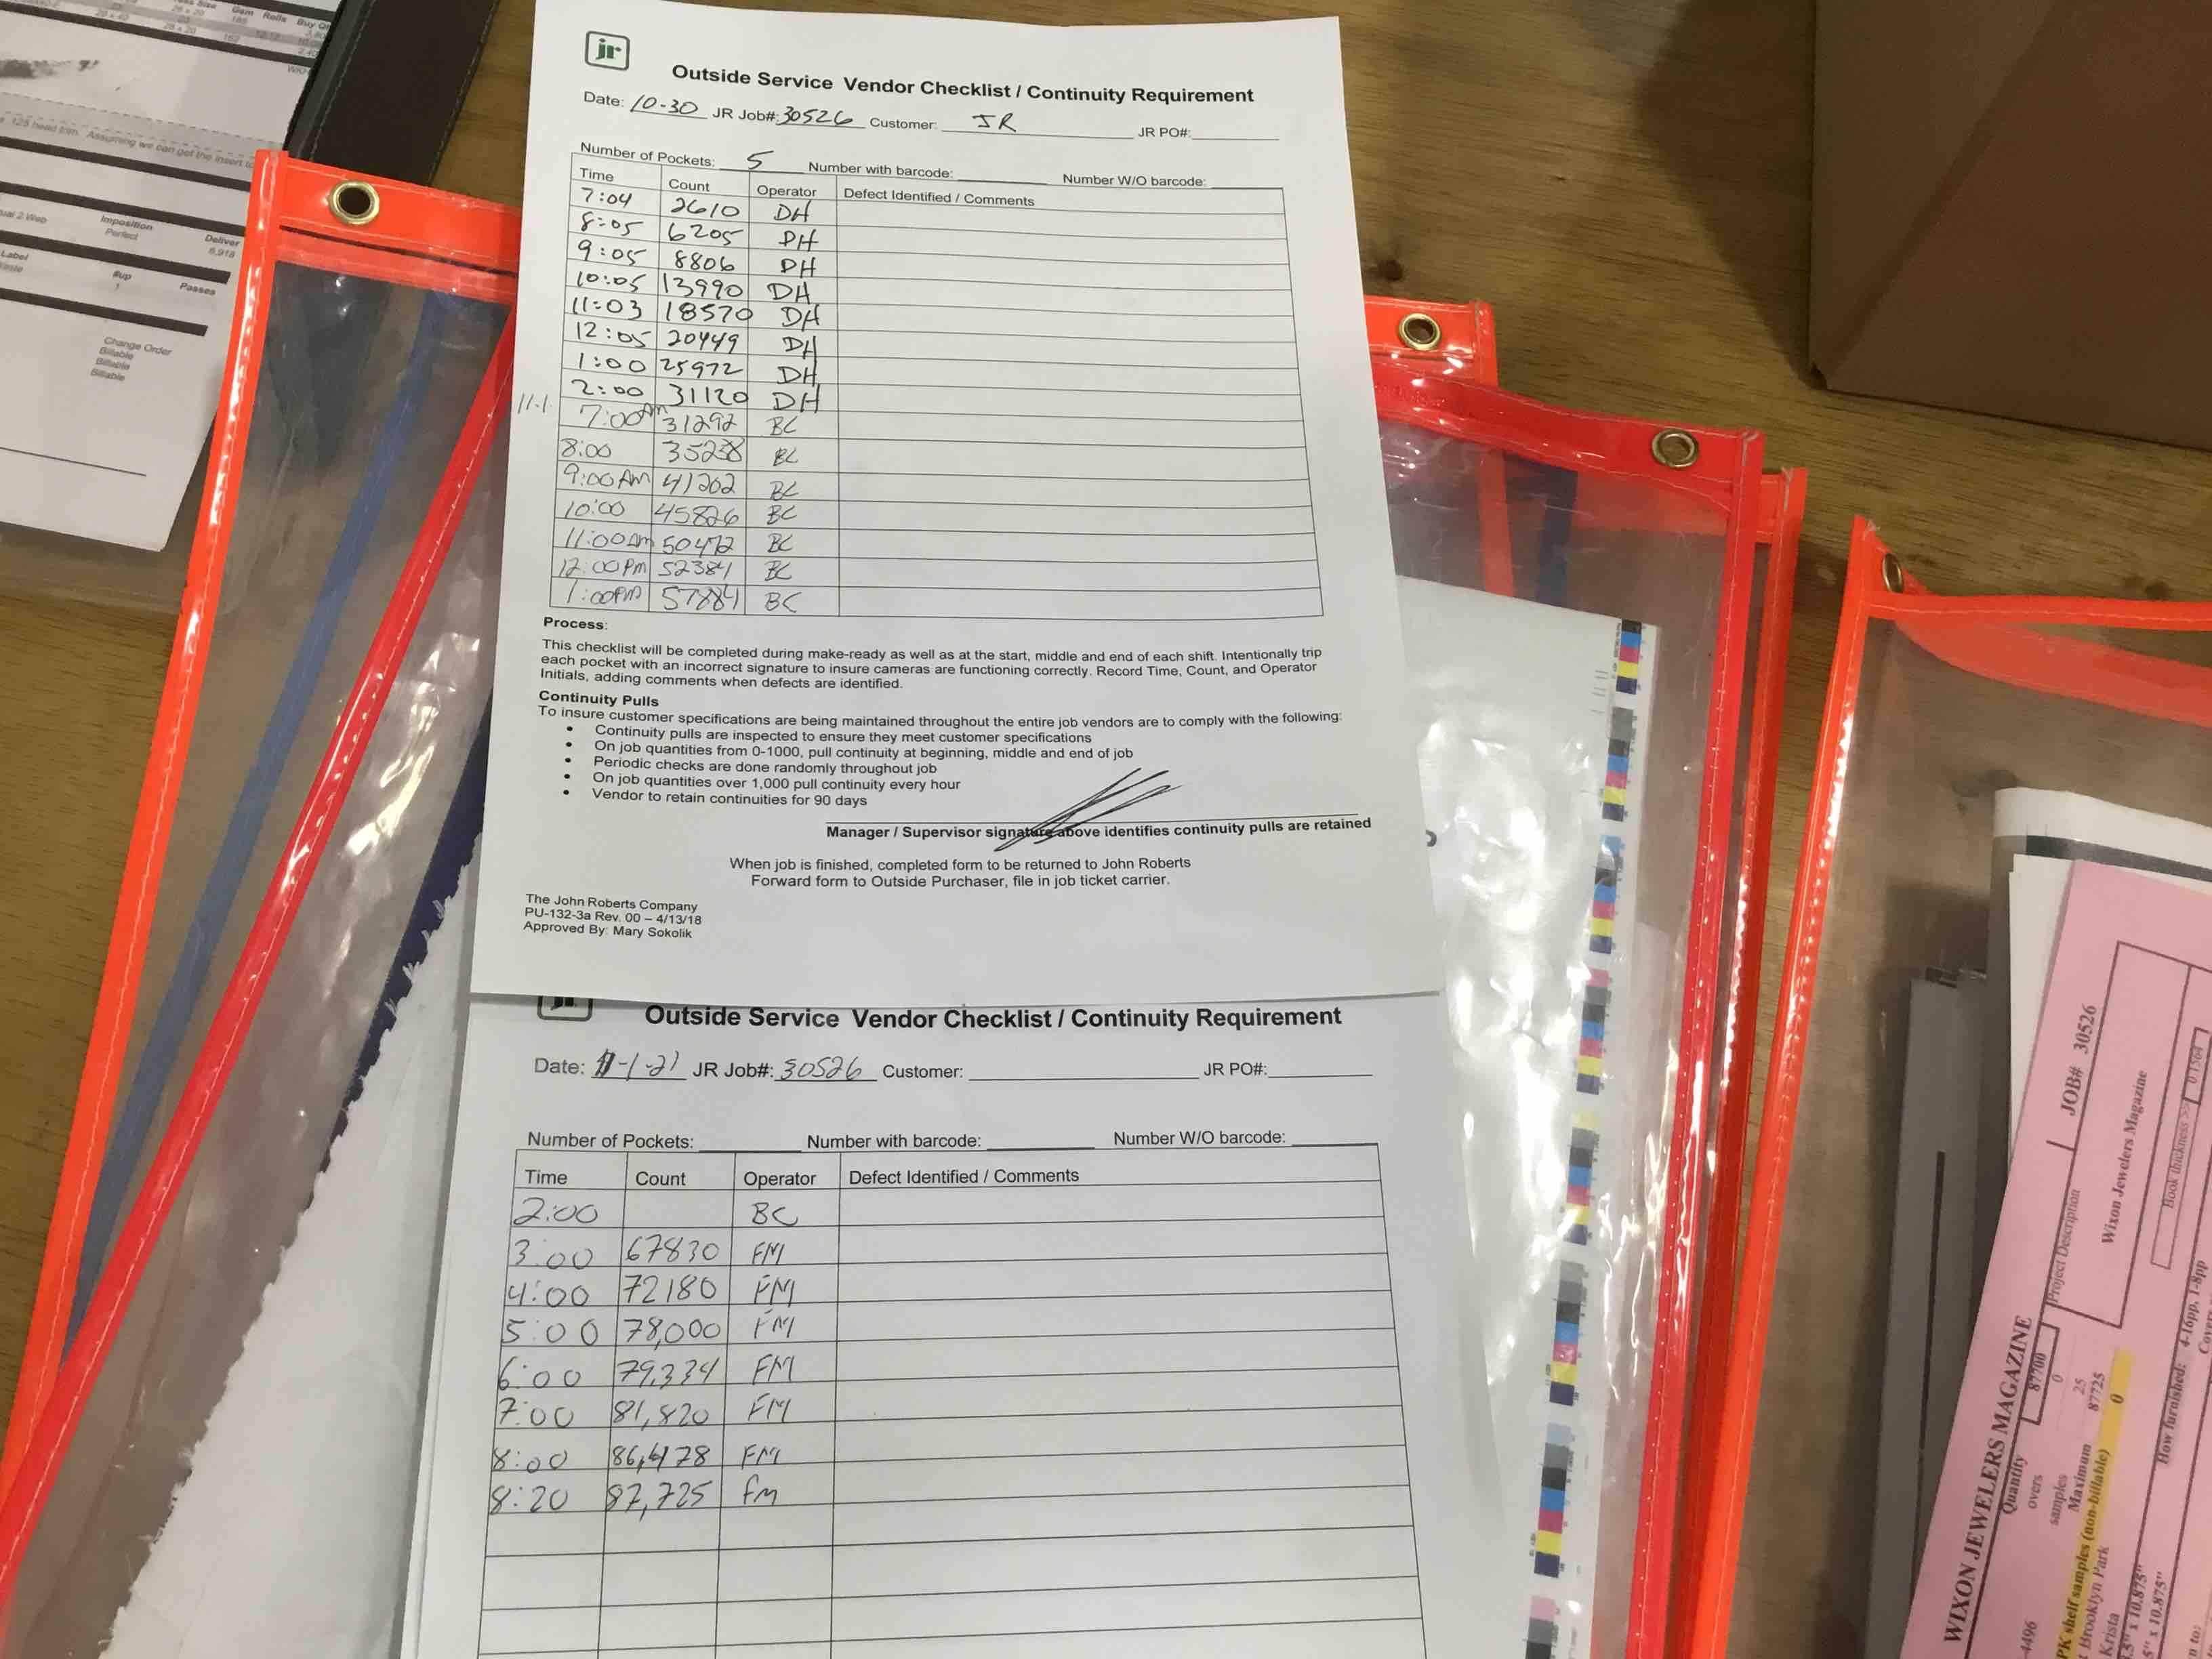 jr
Outside Service Vendor Checklist / Continuity Requirement
Date: 10-30 JR Job#: 30526 Customer: JR JR PO#:
Number of Pockets: 5 Number with barcode: Number W/O barcode:
Time Count Operator Defect Identified / Comments
7:04 2610 DH
8:05 6205 DH
9:05 8806 DH
10:05 13990 DH
11:03 18570 DH
12:05 20449 DH
1:00 25972 DH
2:00 31120 DH
11-1 7:00 AM 31292 BC
8:00 35238 BC
9:00 AM 41202 BC
10:00 45826 BC
11:00 AM 50472 BC
12:00 PM 52384 BC
1:00 PM 57884 BC
Process:
This checklist will be completed during make-ready as well as at the start, middle and end of each shift. Intentionally trip
each pocket with an incorrect signature to insure cameras are functioning correctly. Record Time, Count, and Operator
Initials, adding comments when defects are identified.
Continuity Pulls
To insure customer specifications are being maintained throughout the entire job vendors are to comply with the following:
• Continuity pulls are inspected to ensure they meet customer specifications
• On job quantities from 0-1000, pull continuity at beginning, middle and end of job
• Periodic checks are done randomly throughout job
• On job quantities over 1,000 pull continuity every hour
• Vendor to retain continuities for 90 days
Manager / Supervisor signature above identifies continuity pulls are retained
When job is finished, completed form to be returned to John Roberts
Forward form to Outside Purchaser, file in job ticket carrier.
The John Roberts Company
PU-132-3a Rev. 00 – 4/13/18
Approved By: Mary Sokolik
jr
Outside Service Vendor Checklist / Continuity Requirement
Date: 11-1-21 JR Job#: 30526 Customer: JR PO#:
Number of Pockets: Number with barcode: Number W/O barcode:
Time Count Operator Defect Identified / Comments
2:00 BC
3:00 67830 FM
4:00 72180 FM
5:00 78,000 FM
6:00 79,334 FM
7:00 81,820 FM
8:00 86,478 FM
8:20 87,725 fm
Gsm Rolls
28 x 20
.125 head trim. Assuming we can get the insert to
Imposition Deliver
Perfect 6,918
Label #up Passes
1
Change Order
Billable
Billable
Billable
WIXON JEWELERS MAGAZINE JOB# 30526
Project Description Wixon Jewelers Magazine
Quantity 87700
overs 0
samples 25
Maximum 87725
PK shelf samples (non-billable) 0
Brooklyn Park
Krista
Book thickness >> 0.1564
How furnished: 4-16pp, 1-8pp
5" x 10.875"
5" x 10.875"
4496